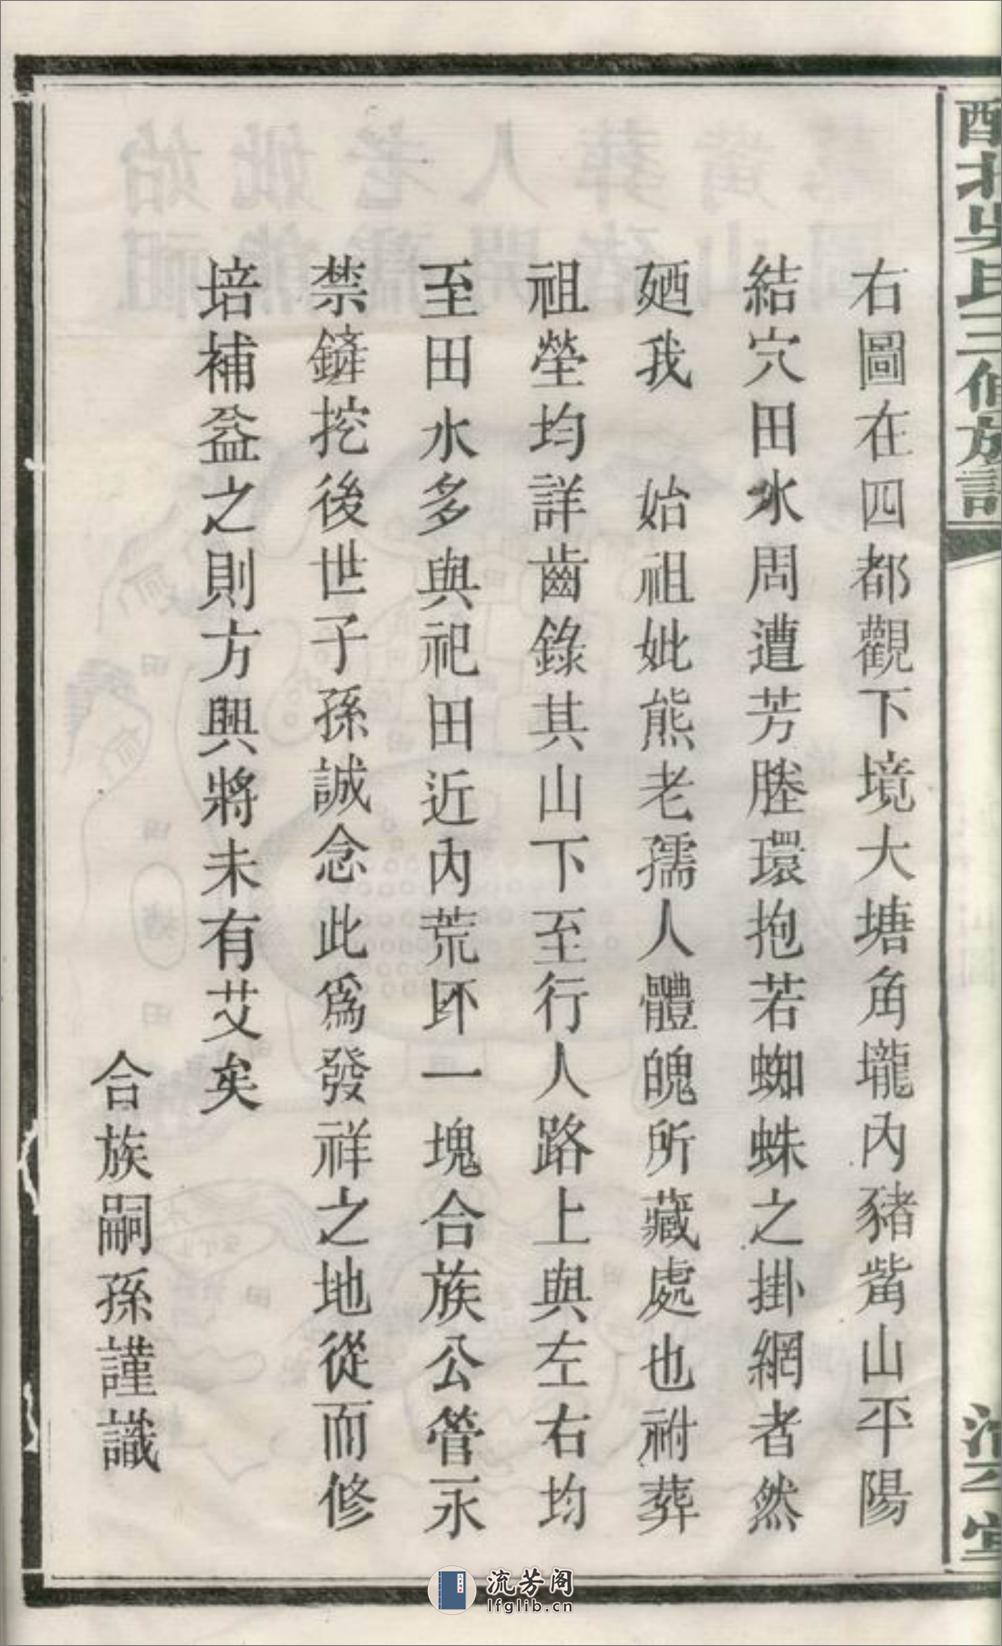 右圖在四都觀下境大塘角壠內豬觜山平陽
結穴田水周遭芳塍環抱若蜘蛛之掛網者然
廼我　始祖妣熊老孺人體魄所藏處也祔葬
祖塋均詳齒錄其山下至行人路上與左右均
至田水多與祀田近內荒坏一塊合族公管永
禁鏟挖後世子孫誠念此爲發祥之地從而修
培補益之則方興將未有艾矣
合族嗣孫謹識
北吳氏三修族譜
流芳阁
lfglib.cn